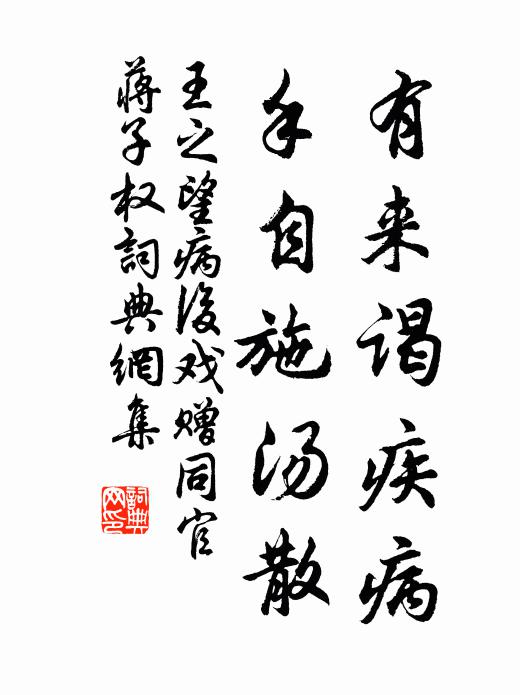 有来谒疾病
手自施汤散
王之望病後戏赠同官
蒋子权詞典網集
詞典网印